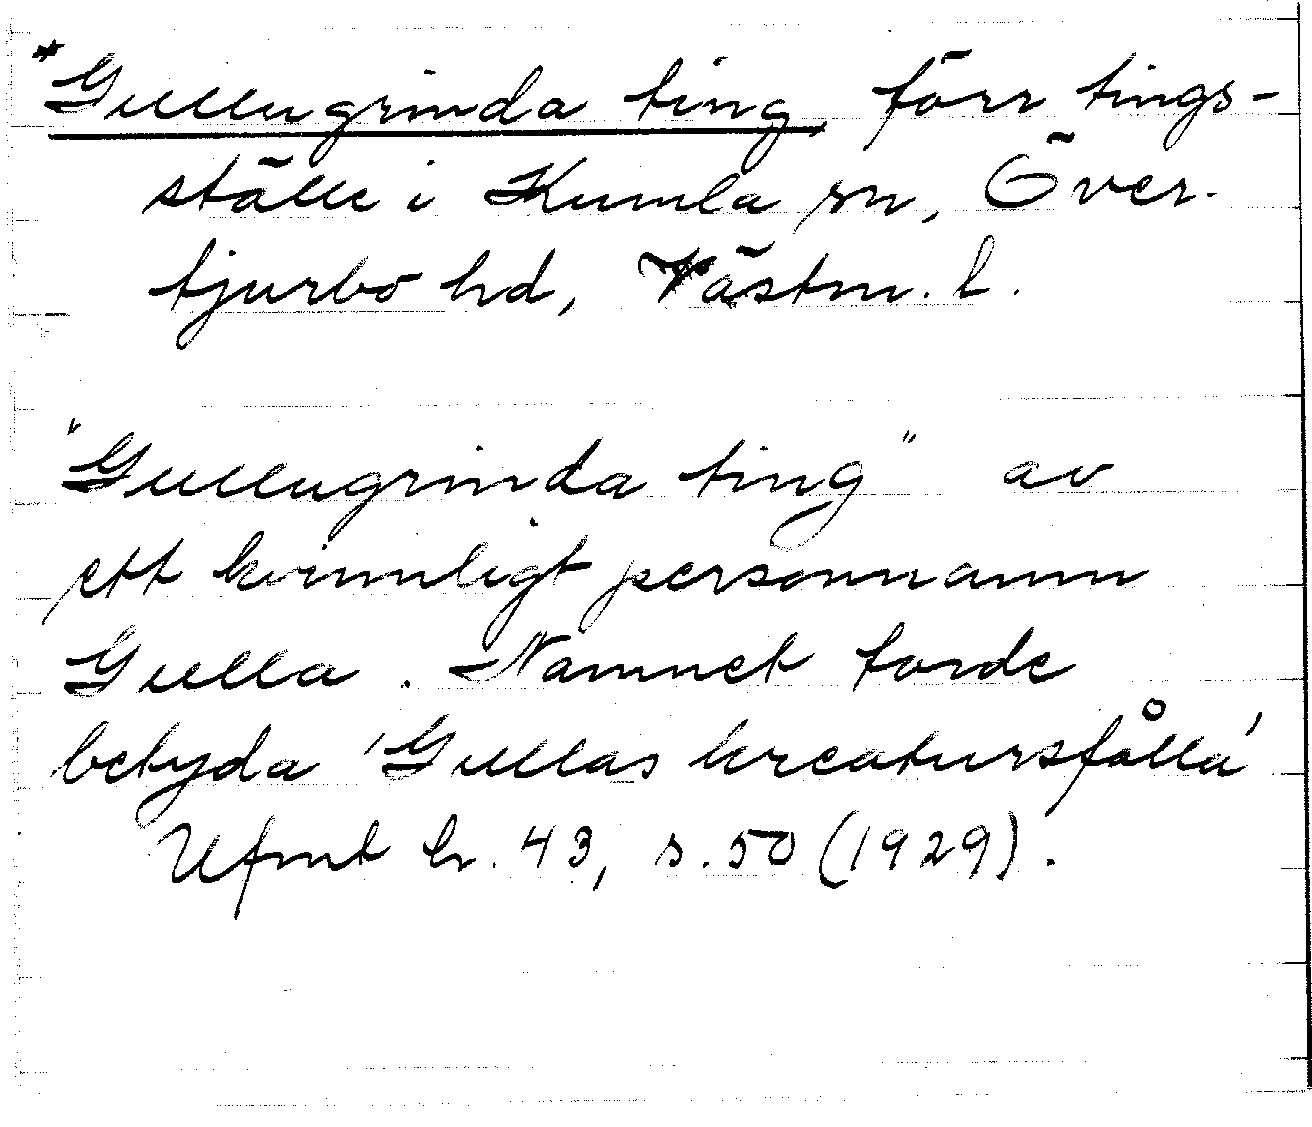 *Gullugrinda ting, förr tings-
ställe i Kumla sn, Över-
tjurbo hd, Västm. l.
"Gullugrinda ting" av
ett kvinnligt personnamn
Gulla. Namnet torde
betyda 'Gullas kreatursfålla'
Ufmt h. 43, s. 50 (1929).